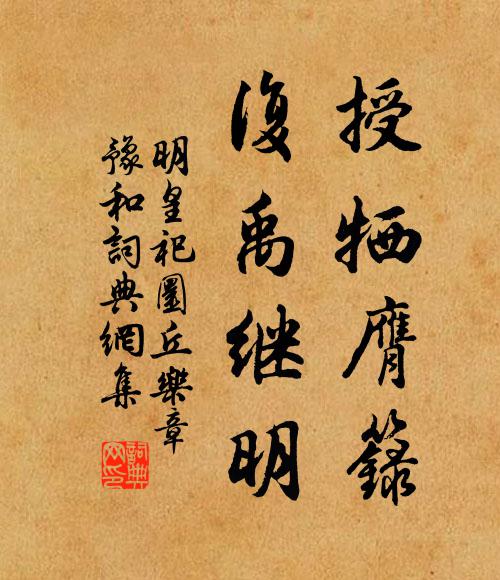 授牺膺籙
復禹继明
明皇祀圜丘樂章
豫和詞典網集
詞典
网印